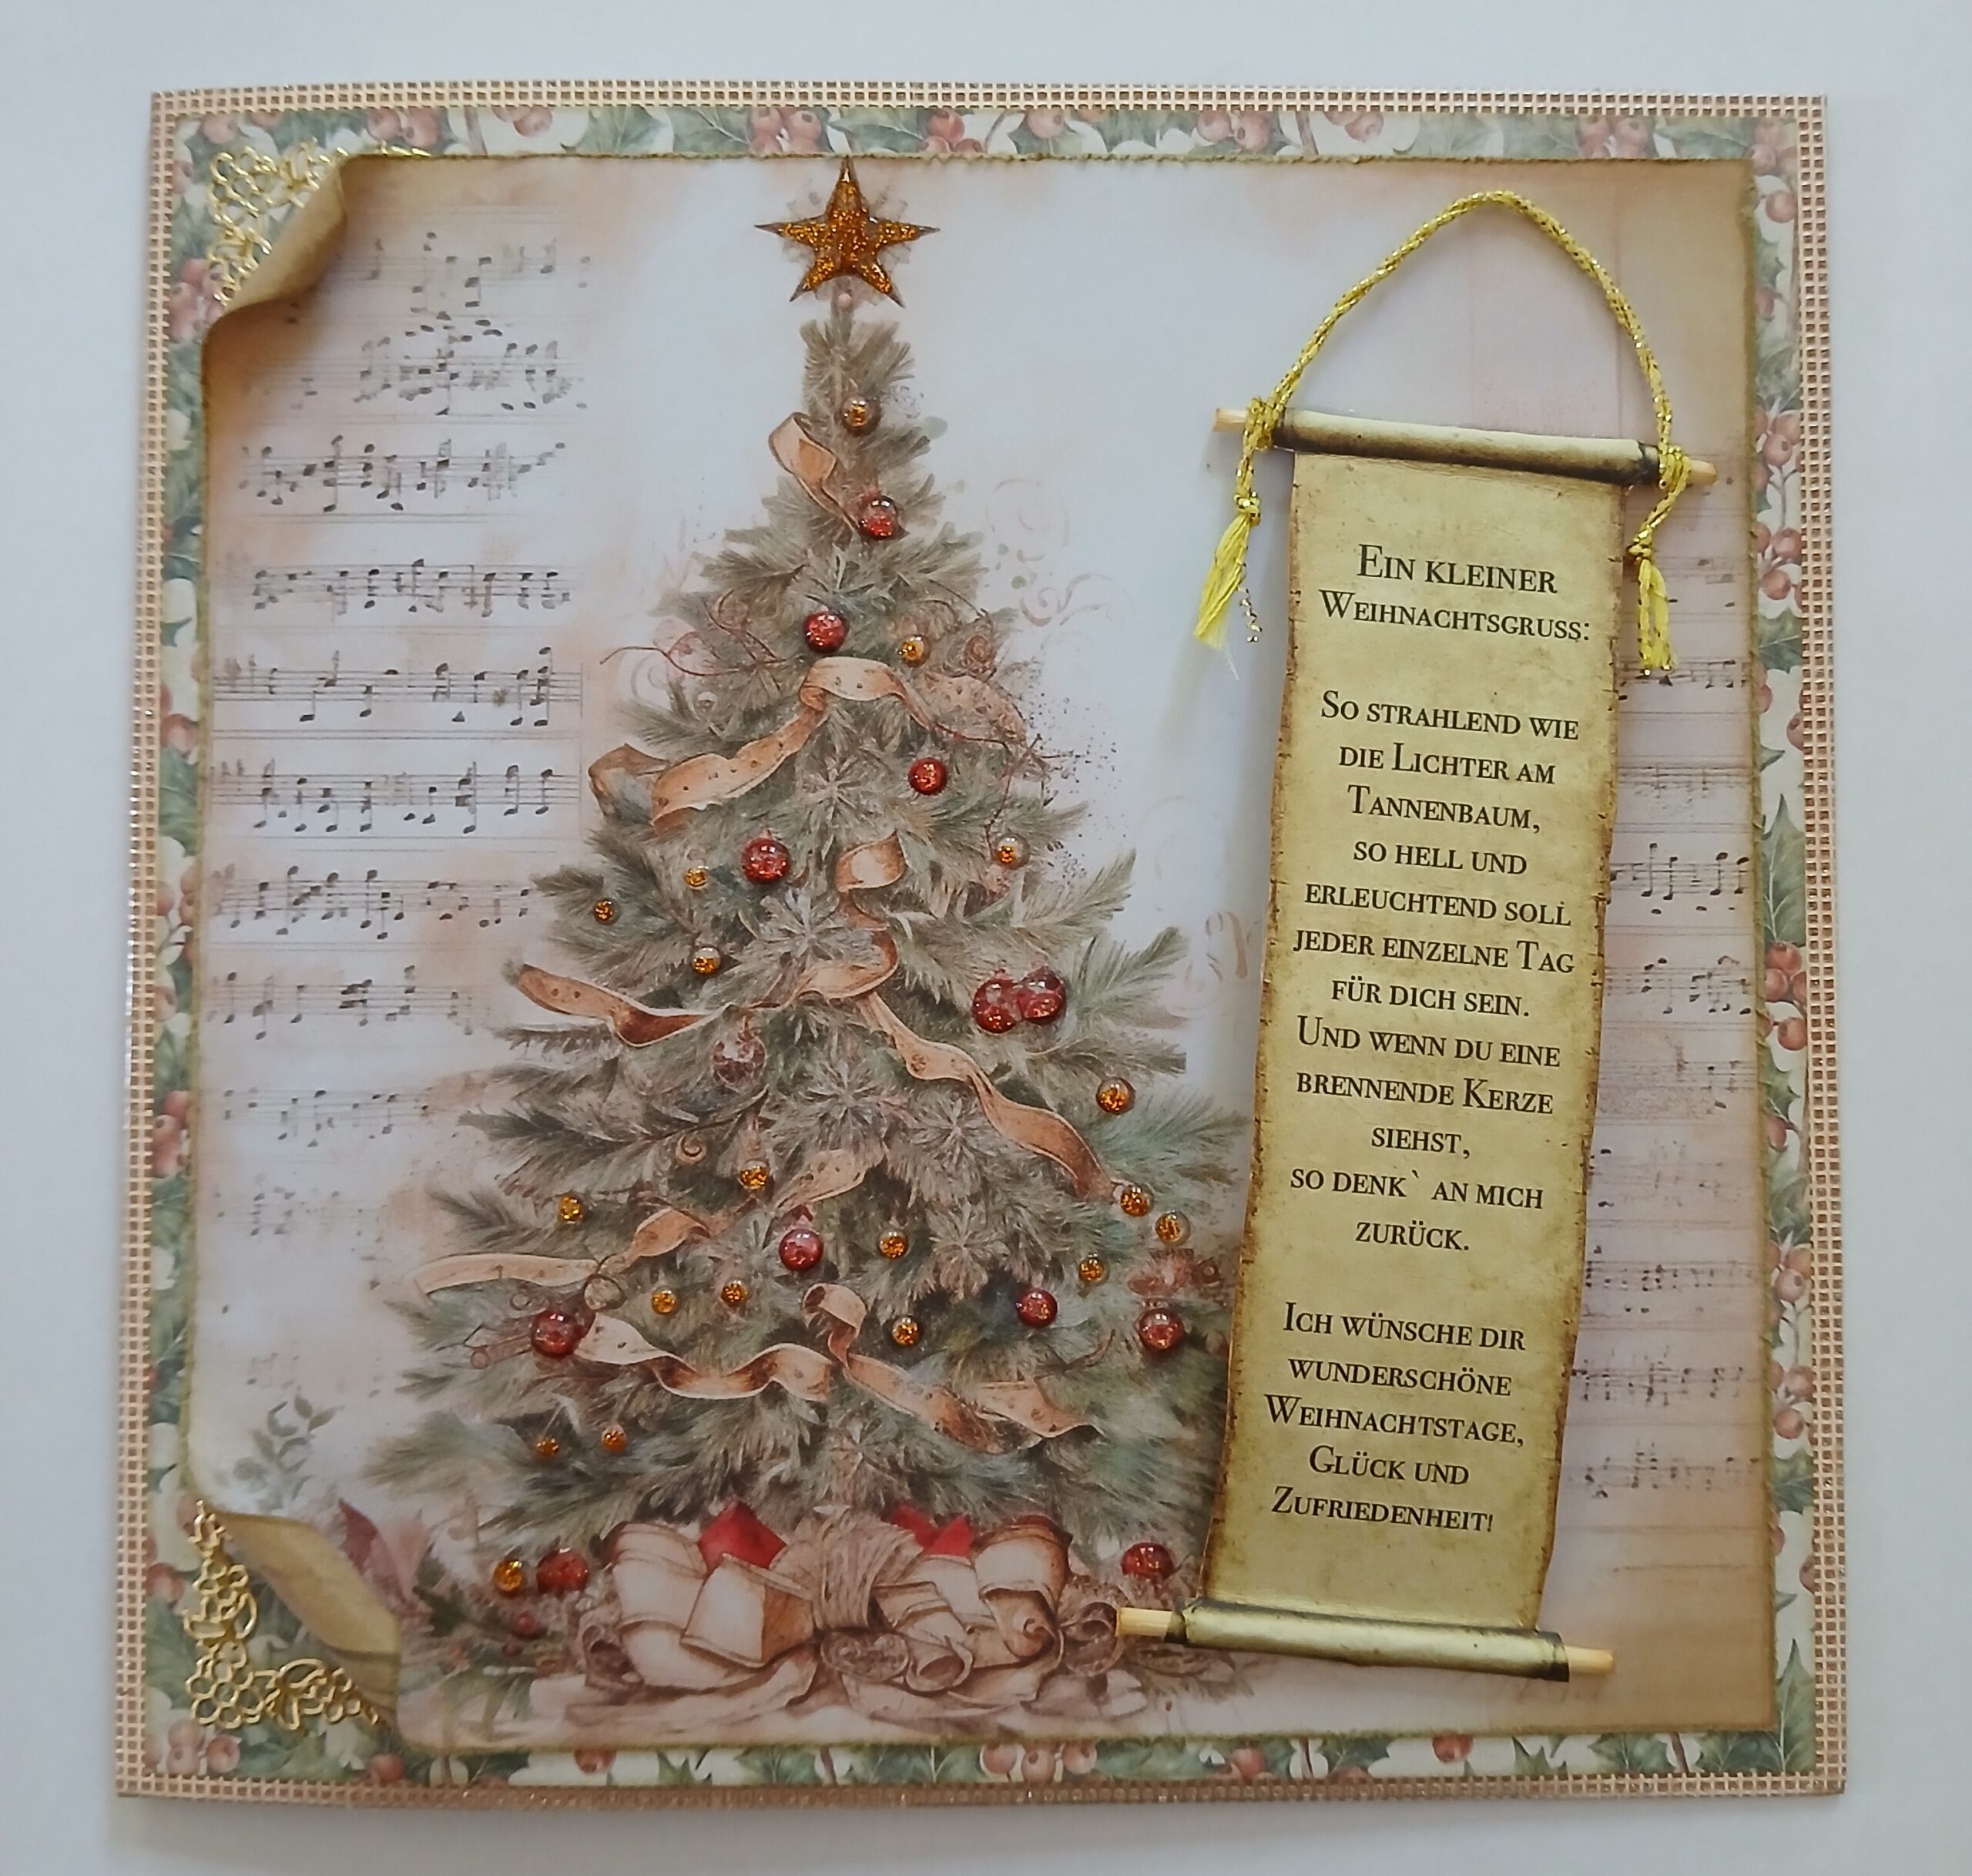 Ein kleiner
Weihnachtsgruss:
So strahlend wie
die Lichter am
Tannenbaum,
so hell und
erleuchtend soll
jeder einzelne Tag
für dich sein.
Und wenn du eine
brennende Kerze
siehst,
so denk` an mich
zurück.
Ich wünsche dir
wunderschöne
Weihnachtstage,
Glück und
Zufriedenheit!